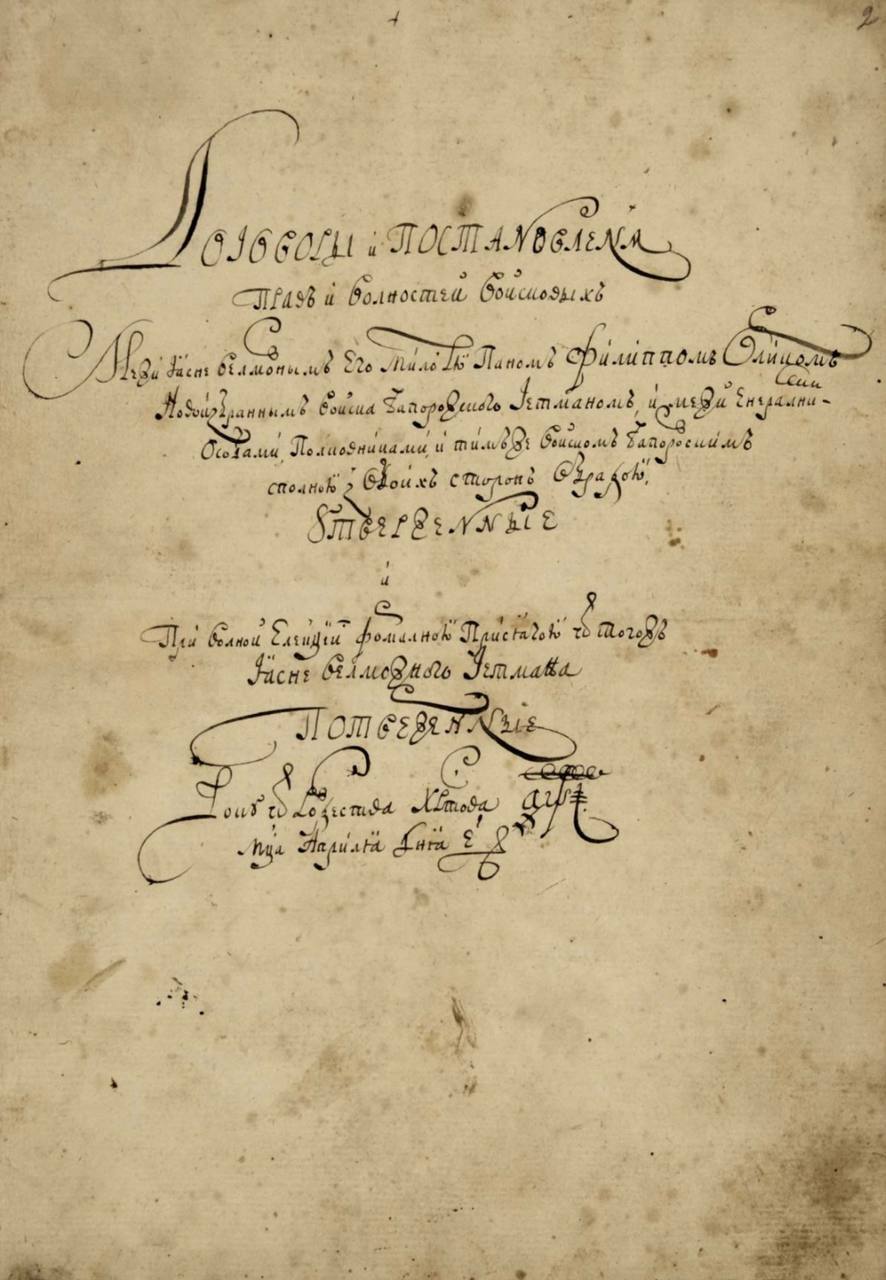 2
Договоры и Постановленѧ
Правъ и волностей войсковыхъ
Межи Ясне велможнымъ Его милостю Паномъ Филиппомъ Орликомъ
Новоизбраннымъ войска Запорожского Гетманомъ, и межи Енерални-
Особами Полковниками, и тимъже войскомъ Запорозскимъ
сполною з обоихъ сторонъ обрадою,
Утверженные
и
При волной Елекцїи формалною Присягою ѿ тогожъ
Ясне велможного Гетмана
Потверженные
Року ѿ Рожества Христова ҂аѱі
мца Априля дня е